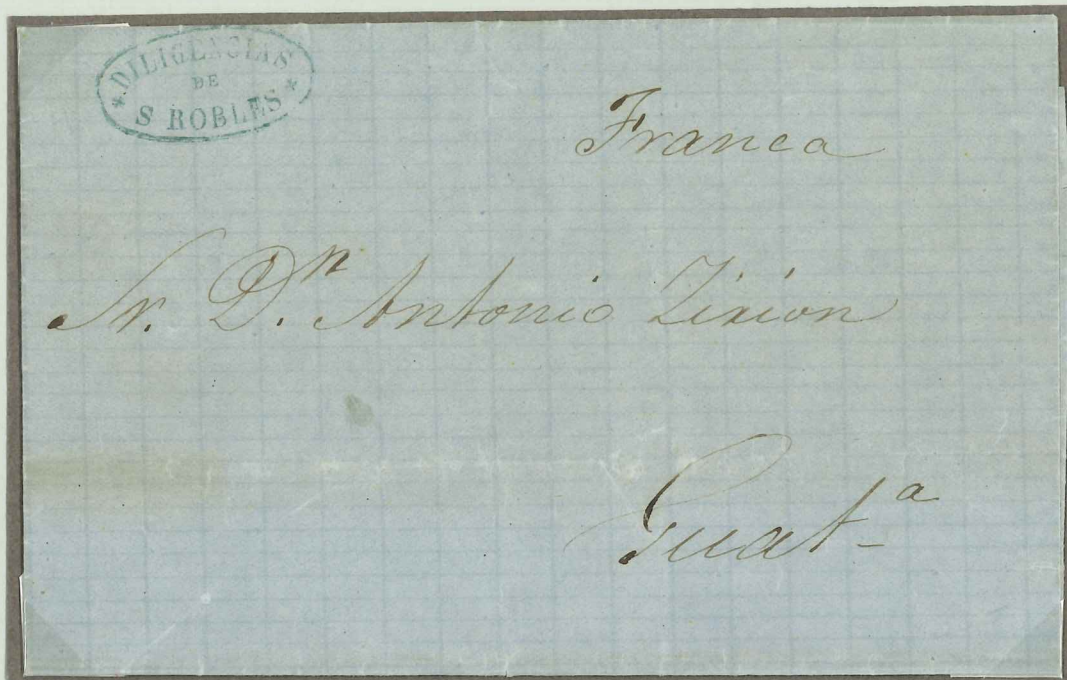 * DILIGENCIAS *
DE
S ROBLES
Franca
Sr. D.ⁿ Antonio Zirion
Guat.ᵃ